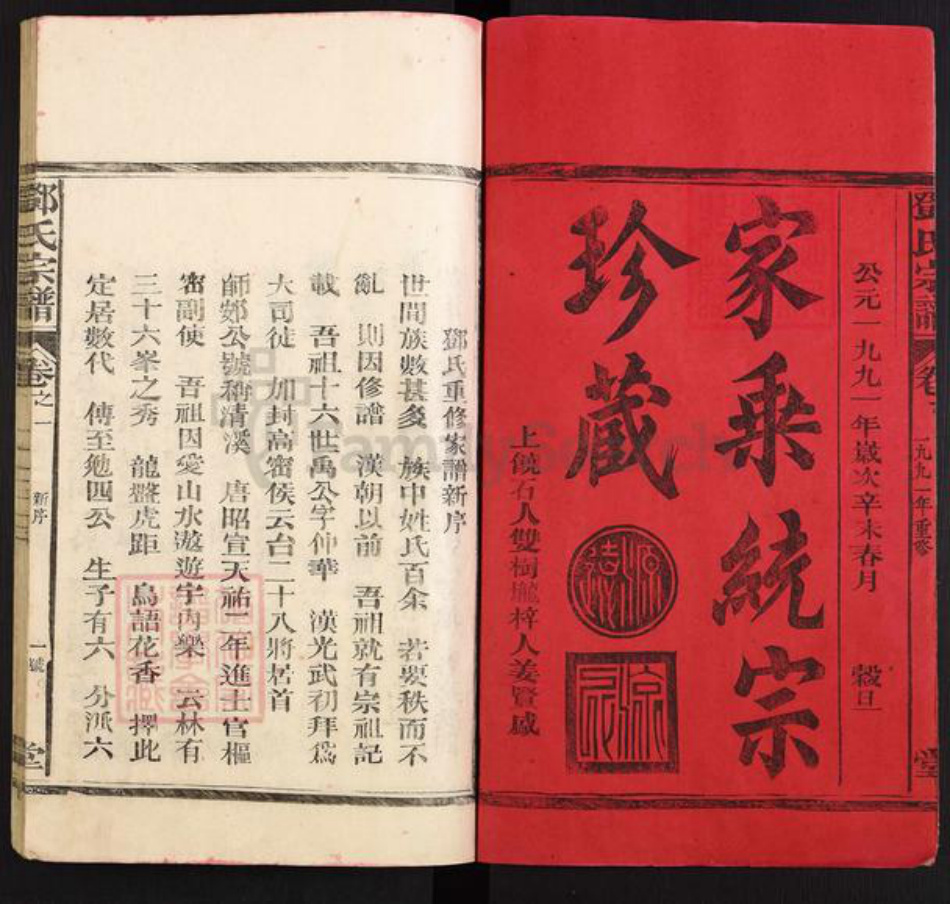 鄧氏宗譜
卷
一九九一年重修
堂
公元一九九一年歲次辛未春月 穀旦
家乘統宗
珍藏
上饒石人雙樹壠梓人姜賢感
鄧氏重修家譜新序
世間族數甚多 族中姓氏百余 若要秩而不
亂 則因修譜 漢朝以前 吾祖就有宗祖記
載 吾祖十六世禹公字仲華 漢光武初拜為
大司徒 加封高密侯云台二十八將居首
師鄭公號稱清溪 唐昭宣天祐二年進士官樞
密副使 吾祖因愛山水遨遊宇內樂 云林有
三十六峯之秀 龍盤虎距 鳥語花香 擇此
定居數代 傳至勉四公 生子有六 分派六
鄧氏宗譜
卷之一
新序
一號
堂